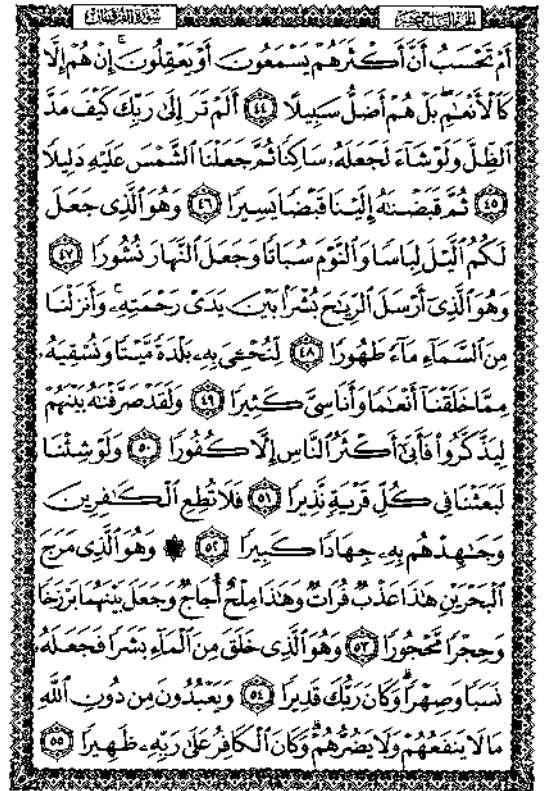 سورة الفرقان الجزء التاسع عشر
أَمْ تَحْسَبُ أَنَّ أَكْثَرَهُمْ يَسْمَعُونَ أَوْ يَعْقِلُونَ ۚ إِنْ هُمْ إِلَّا
كَٱلْأَنْعَٰمِ ۖ بَلْ هُمْ أَضَلُّ سَبِيلًا ٤٤ أَلَمْ تَرَ إِلَىٰ رَبِّكَ كَيْفَ مَدَّ
ٱلظِّلَّ وَلَوْ شَآءَ لَجَعَلَهُۥ سَاكِنًا ثُمَّ جَعَلْنَا ٱلشَّمْسَ عَلَيْهِ دَلِيلًا
٤٥ ثُمَّ قَبَضْنَٰهُ إِلَيْنَا قَبْضًا يَسِيرًا ٤٦ وَهُوَ ٱلَّذِى جَعَلَ
لَكُمُ ٱلَّيْلَ لِبَاسًا وَٱلنَّوْمَ سُبَاتًا وَجَعَلَ ٱلنَّهَارَ نُشُورًا ٤٧
وَهُوَ ٱلَّذِىٓ أَرْسَلَ ٱلرِّيَٰحَ بُشْرًۢا بَيْنَ يَدَىْ رَحْمَتِهِۦ ۚ وَأَنزَلْنَا
مِنَ ٱلسَّمَآءِ مَآءً طَهُورًا ٤٨ لِّنُحْۦِىَ بِهِۦ بَلْدَةً مَّيْتًا وَنُسْقِيَهُۥ
مِمَّا خَلَقْنَآ أَنْعَٰمًا وَأَنَاسِىَّ كَثِيرًا ٤٩ وَلَقَدْ صَرَّفْنَٰهُ بَيْنَهُمْ
لِيَذَّكَّرُوا۟ فَأَبَىٰٓ أَكْثَرُ ٱلنَّاسِ إِلَّا كُفُورًا ٥٠ وَلَوْ شِئْنَا
لَبَعَثْنَا فِى كُلِّ قَرْيَةٍ نَّذِيرًا ٥١ فَلَا تُطِعِ ٱلْكَٰفِرِينَ
وَجَٰهِدْهُم بِهِۦ جِهَادًا كَبِيرًا ٥٢ ۞ وَهُوَ ٱلَّذِى مَرَجَ
ٱلْبَحْرَيْنِ هَٰذَا عَذْبٌ فُرَاتٌ وَهَٰذَا مِلْحٌ أُجَاجٌ وَجَعَلَ بَيْنَهُمَا بَرْزَخًا
وَحِجْرًا مَّحْجُورًا ٥٣ وَهُوَ ٱلَّذِى خَلَقَ مِنَ ٱلْمَآءِ بَشَرًا فَجَعَلَهُۥ
نَسَبًا وَصِهْرًا ۗ وَكَانَ رَبُّكَ قَدِيرًا ٥٤ وَيَعْبُدُونَ مِن دُونِ ٱللَّهِ
مَا لَا يَنفَعُهُمْ وَلَا يَضُرُّهُمْ ۗ وَكَانَ ٱلْكَافِرُ عَلَىٰ رَبِّهِۦ ظَهِيرًا ٥٥